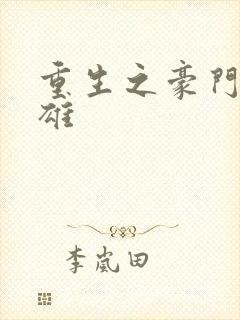 重生之豪門
雄
李嵐田